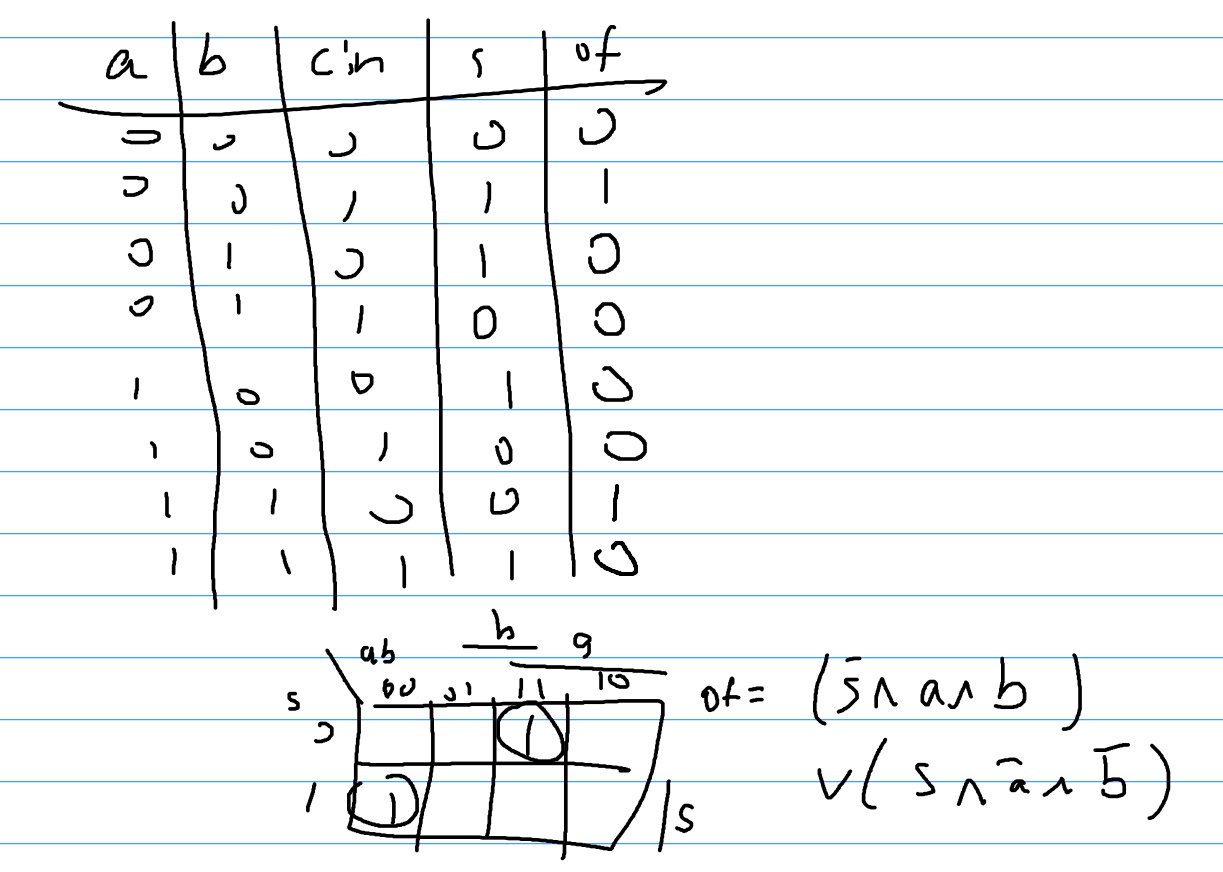 a b cin s of
0 0 0 0 0
0 0 1 1 1
0 1 0 1 0
0 1 1 0 0
1 0 0 1 0
1 0 1 0 0
1 1 0 0 1
1 1 1 1 0
b a
ab
s 00 01 11 10
0 1
1 1 s
of = (s̄ ∧ a ∧ b)
∨ (s ∧ ā ∧ b̄)